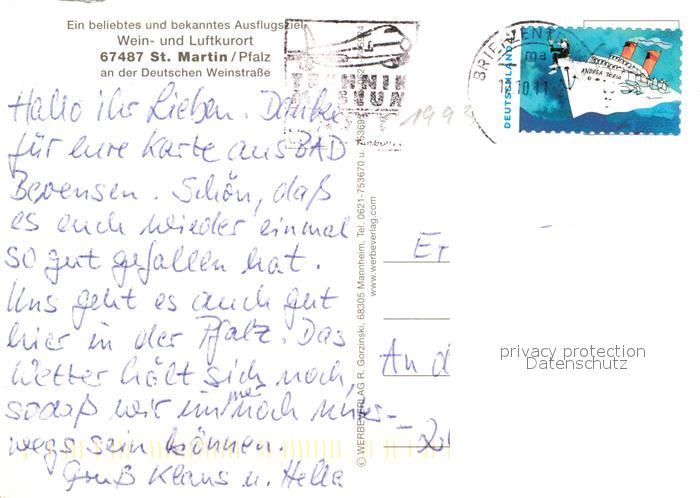 Ein beliebtes und bekanntes Ausflugsziel
Wein- und Luftkurort
67487 St. Martin / Pfalz
an der Deutschen Weinstraße
Hallo ihr Lieben. Danke
für eure Karte aus BAD
Bevensen. Schön, daß
es euch wieder einmal
so gut gefallen hat.
Uns geht es auch gut
hier in der Pfalz. Das
Wetter hält sich noch,
sodaß wir immer noch unter-
wegs sein können.
Gruß Klaus u. Hella
© WERBEVERLAG R. Gorzinski, 68305 Mannheim, Tel. 0621-753670 u.
www.werbeverlag.com
BRIEFZENT
DEUTSCHLAND
ANDREA
Er
An d
privacy protection
Datenschutz